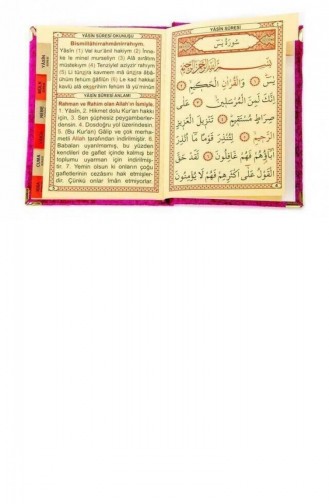 YÂSÎN SÛRESİ OKUNUŞU
Bismillâhirrahmânirrahîym.
Yâsîn (1) Vel kur'ânil hakiym (2) İnne-
ke le minel murseliyn (3) Alâ sırâtim
müstekıym (4) Tenziylel aziyzir rahıym
(5) Li tünzira kavmem mâ ünzira âbâ-
ühüm fehüm ğâfilûn (6) Le kad hakkal
kavlü alâ ekserihim fehüm lâ yü'minûn
YÂSİN SÛRESİ ANLAMI
Rahman ve Rahim olan Allah'ın İsmiyle.
1. Yâsîn, 2. Hikmet dolu Kur'an hakkı
için, 3. Sen şüphesiz peygamberler-
densin. 4. Dosdoğru yol üzerindesin.
5. (Bu Kur'an) Gâlip ve çok merha-
metli Allah tarafından indirilmiştir. 6.
Babaları uyarılmamış, bu yüzden
kendileri de gaflet içinde kalmış bir
toplumu uyarman için indirilmiş-
tir. 7. Yemin olsun ki onların çoğu
gafletlerinin cezâsını hak etmişler-
dir. Çünkü onlar îman etmiyorlar.
YÂSİN
CUMA
YÂSİN SÛRESİ
سُورَةُ يٰسٓ
بِسْمِ اللّٰهِ الرَّحْمٰنِ الرَّحِيمِ
يٰسٓ ﴿١﴾ وَالْقُرْاٰنِ الْحَكِيمِ ﴿٢﴾
اِنَّكَ لَمِنَ الْمُرْسَلِينَ ﴿٣﴾ عَلٰى
صِرَاطٍ مُسْتَقِيمٍ ﴿٤﴾ تَنْزِيلَ الْعَزِيزِ
الرَّحِيمِ ﴿٥﴾ لِتُنْذِرَ قَوْمًا مَٓا اُنْذِرَ
اٰبَٓاؤُ۬هُمْ فَهُمْ غَافِلُونَ ﴿٦﴾ لَقَدْ حَقَّ
الْقَوْلُ عَلٰٓى اَكْثَرِهِمْ فَهُمْ لَا يُؤْمِنُونَ